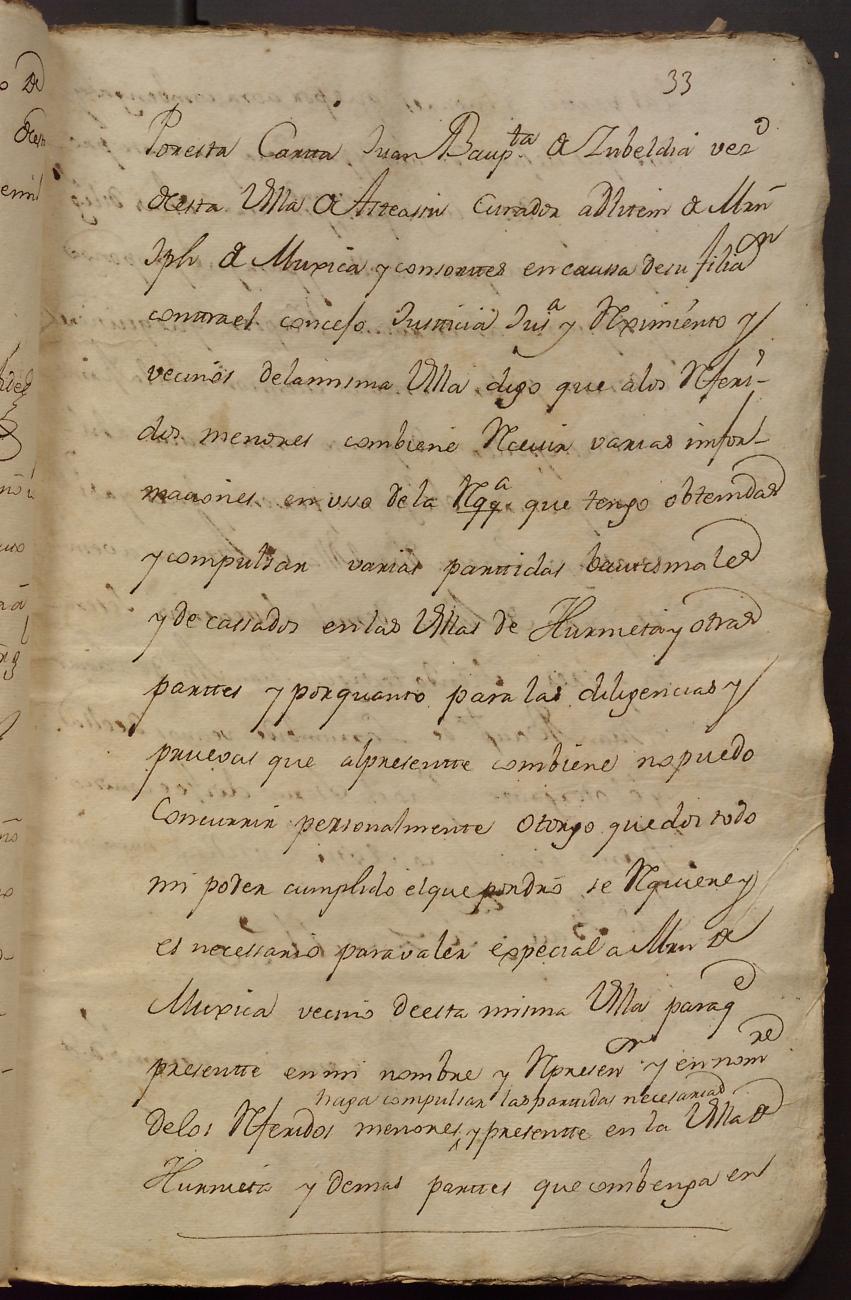 33
Poresta Cartta Juan Baup.ta de Zubeldia vez.o
de esta Villa de Asteasu Curador adlitem de Mrn
Jph de Muxica y consorttes en caussa de su filia.on
conttra el concejo Justticia Jus.a y Reximiento y
vecinos de la misma Villa digo que a los Referi-
dos menores combiene Recivir varias infor-
maciones en usso de la Rqq.a que tengo obtenida
y compulsar varias parttidas bautismales
y de cassados en las Villas de Hurnieta y otras
parttes y por quanto para las diligencias y
pruevas que al presentte combiene no puedo
Concurrir personalmentte otorgo que doi todo
mi poder cumplido el que por dro se Rquiere y
es necessario para valer especial a Mrn de
Muxica vecino de esta misma Villa para q.e
presentte en mi nombre y Rpresen.on y en nom.re
haga compulsar las parttidas necesarias
de los Rferidos menores, y presentte en la Villa de
Hurnieta y demas parttes que combenga en